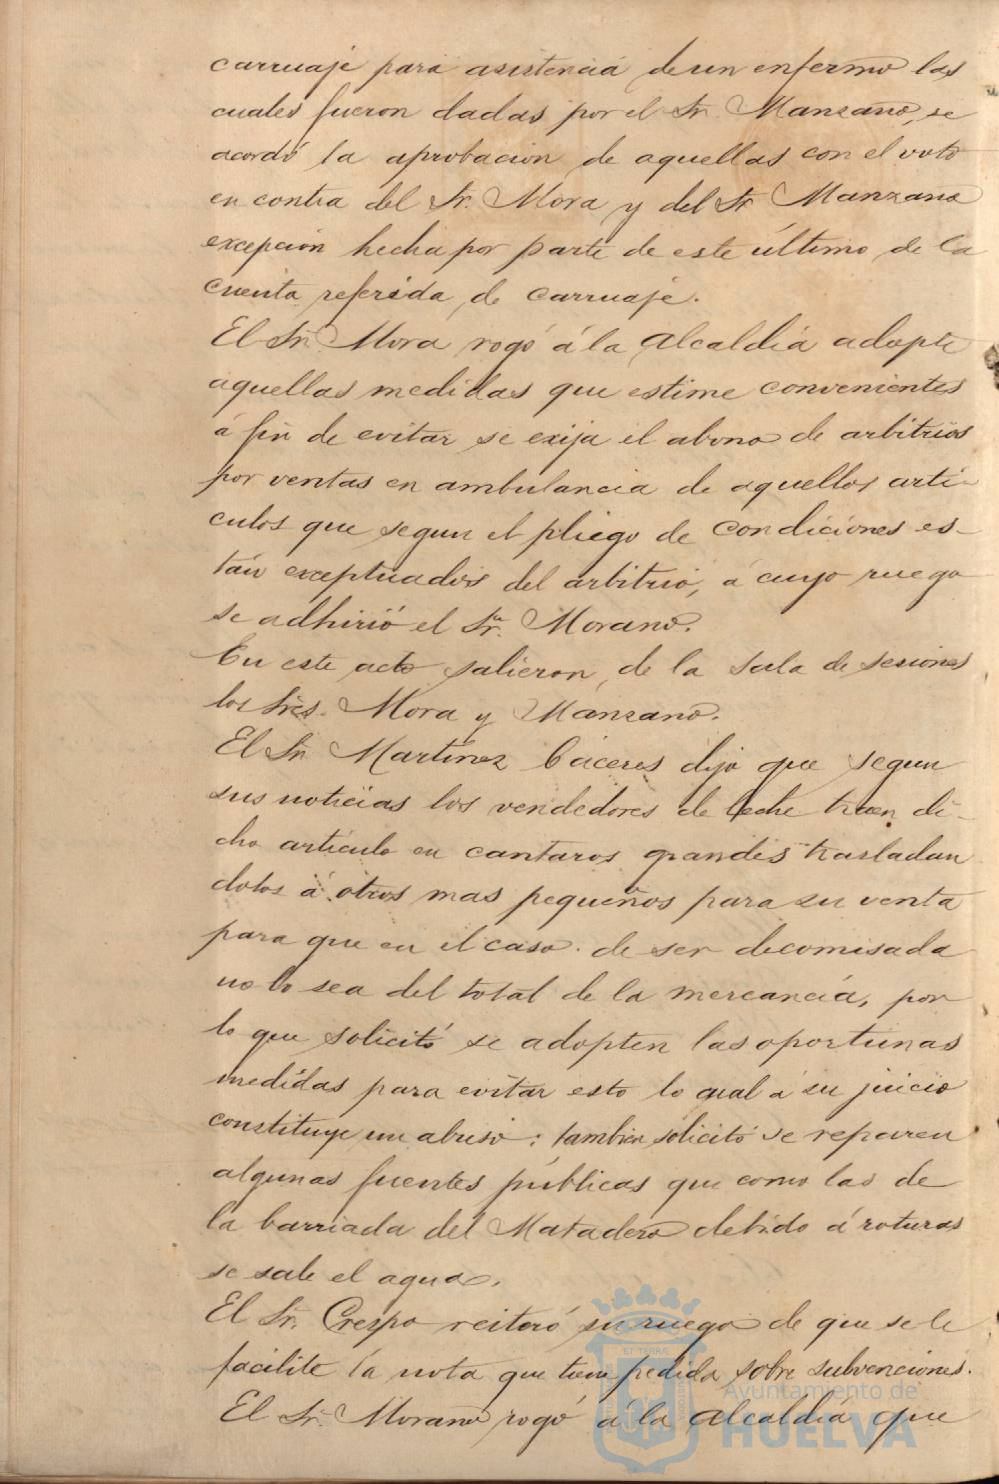 carruaje para asistencia de un enfermo las
cuales fueron dadas por el Sr. Manzano, se
acordó la aprobacion de aquellas con el voto
en contra del Sr. Mora y del Sr Manzano
excepción hecha por parte de este último de la
cuenta referida de carruaje.
El Sr. Mora rogó á la Alcaldía adopte
aquellas medidas que estime convenientes
á fin de evitar se exija el abono de arbitrios
por ventas en ambulancia de aquellos artí-
culos que segun el pliego de condiciones es-
tán exceptuados del arbitrio, á cuyo ruego
se adhirió el Sr. Morano.
En este acto salieron de la sala de sesiones
los Sres. Mora y Manzano.
El Sr. Martínez Cáceres dijo que segun
sus noticias los vendedores de leche traen di-
cho artículo en cantaros grandes trasladan
dolos á otros mas pequeños para su venta
para que en el caso de ser decomisada
no lo sea del total de la mercancía, por
lo que solicitó se adopten las oportunas
medidas para evitar esto lo qual á su juicio
constituye un abuso; tambien solicitó se reparen
algunas fuentes públicas que como las de
la barriada del Matadero debido á roturas
se sale el agua.
El Sr. Crespo reiteró su ruego de que se le
facilite la nota que tiene pedida sobre subvenciones.
El Sr. Morano rogó á la Alcaldía que
Ayuntamiento de
HUELVA